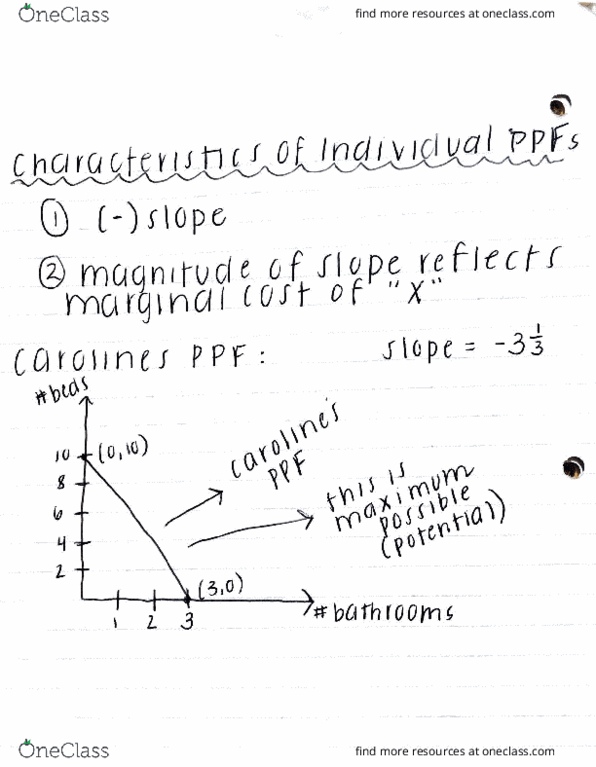 OneClass
find more resources at oneclass.com
characteristics of individual PPFs
① (-) slope
② magnitude of slope reflects
marginal cost of "X"
carolines PPF :
slope = -3 1/3
#beds
10
(0,10)
8
6
4
2
caroline's
PPF
this is
maximum
possible
(potential))
(3,0)
1 2 3
#bathrooms
OneClass
find more resources at oneclass.com